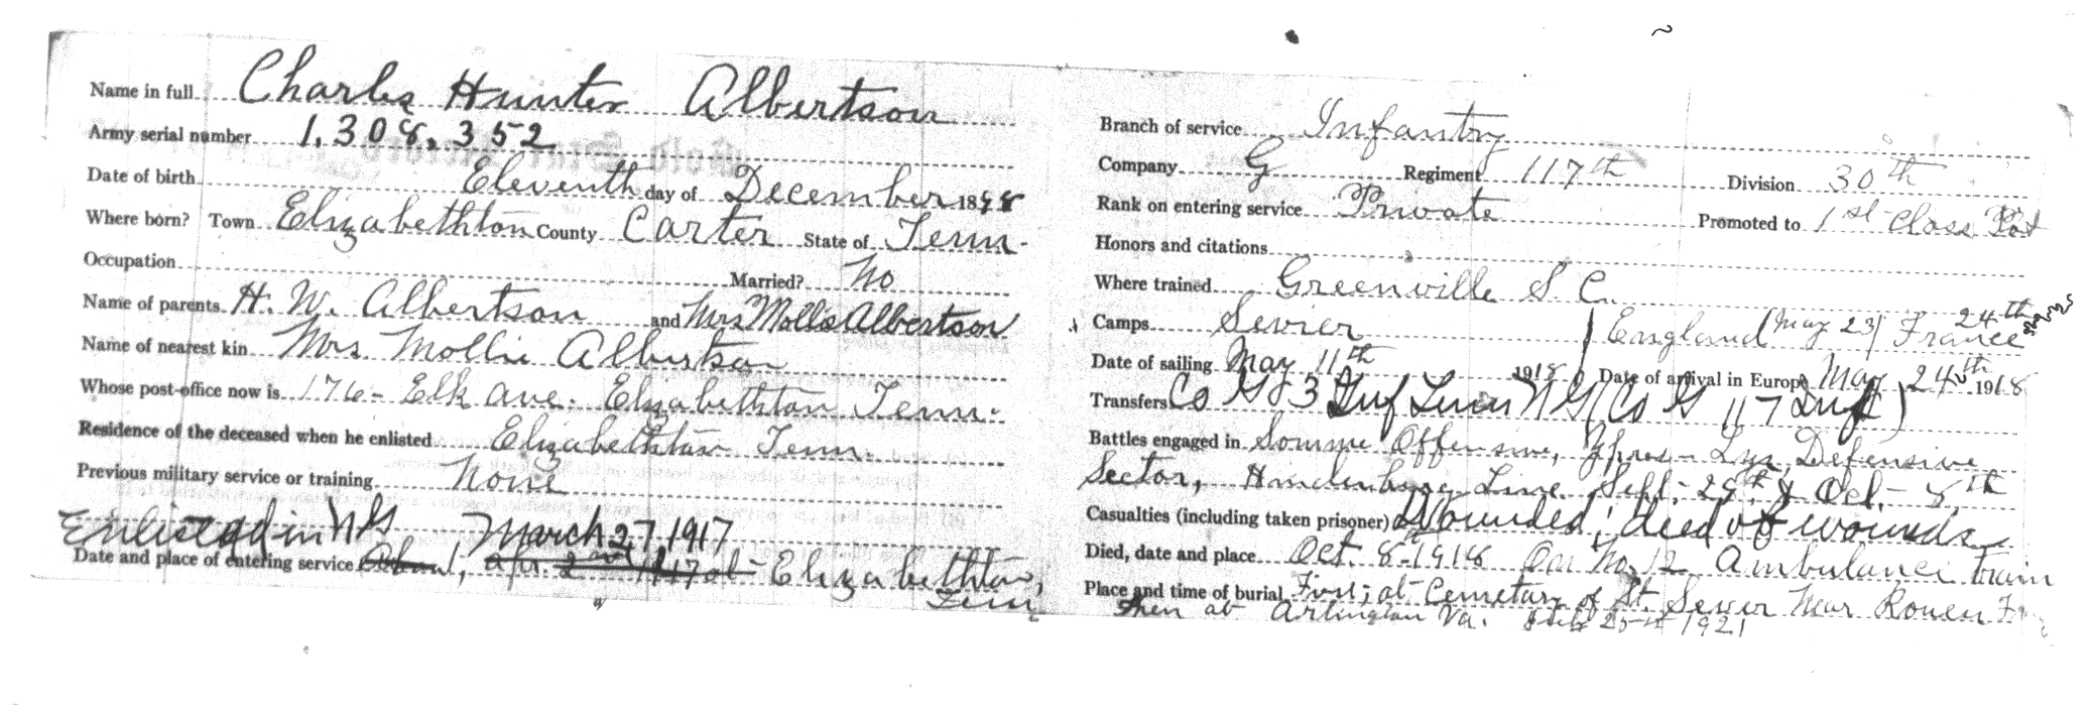 Name in full Charles Hunter Albertson
Army serial number 1,308,352
Date of birth Eleventh day of December 1898
Where born? Town Elizabethton County Carter State of Tenn.
Occupation Married? No
Name of parents H. W. Albertson and Mrs Mollie Albertson
Name of nearest kin Mrs. Mollie Albertson
Whose post-office now is 176 - Elk Ave. Elizabethton Tenn.
Residence of the deceased when he enlisted Elizabethton Tenn.
Previous military service or training None
Enlisted in NG March 27, 1917
Date and place of entering service About, Apr. 2nd 1917 at Elizabethton,
Tenn
Branch of service Infantry
Company G Regiment 117th Division 30th
Rank on entering service Private Promoted to 1st Class Pvt
Honors and citations
Where trained Greenville S. C.
Camps Sevier England May 23 France 24th
Date of sailing May 11th 1918 Date of arrival in Europe May 24th 1918
Transfers Co G 3 Inf Tenn NG (Co G 117 Inf)
Battles engaged in Somme Offensive, Ypres - Lys, Defensive
Sector, Hindenburg Line. Sept. 29th & Oct. - 8th
Casualties (including taken prisoner) Wounded; died of wounds
Died, date and place Oct. 8-1918 On No. 12 Ambulance train
Place and time of burial First; at Cemetary of St. Sever Near Rouen Fr
then at Arlington Va. 1921